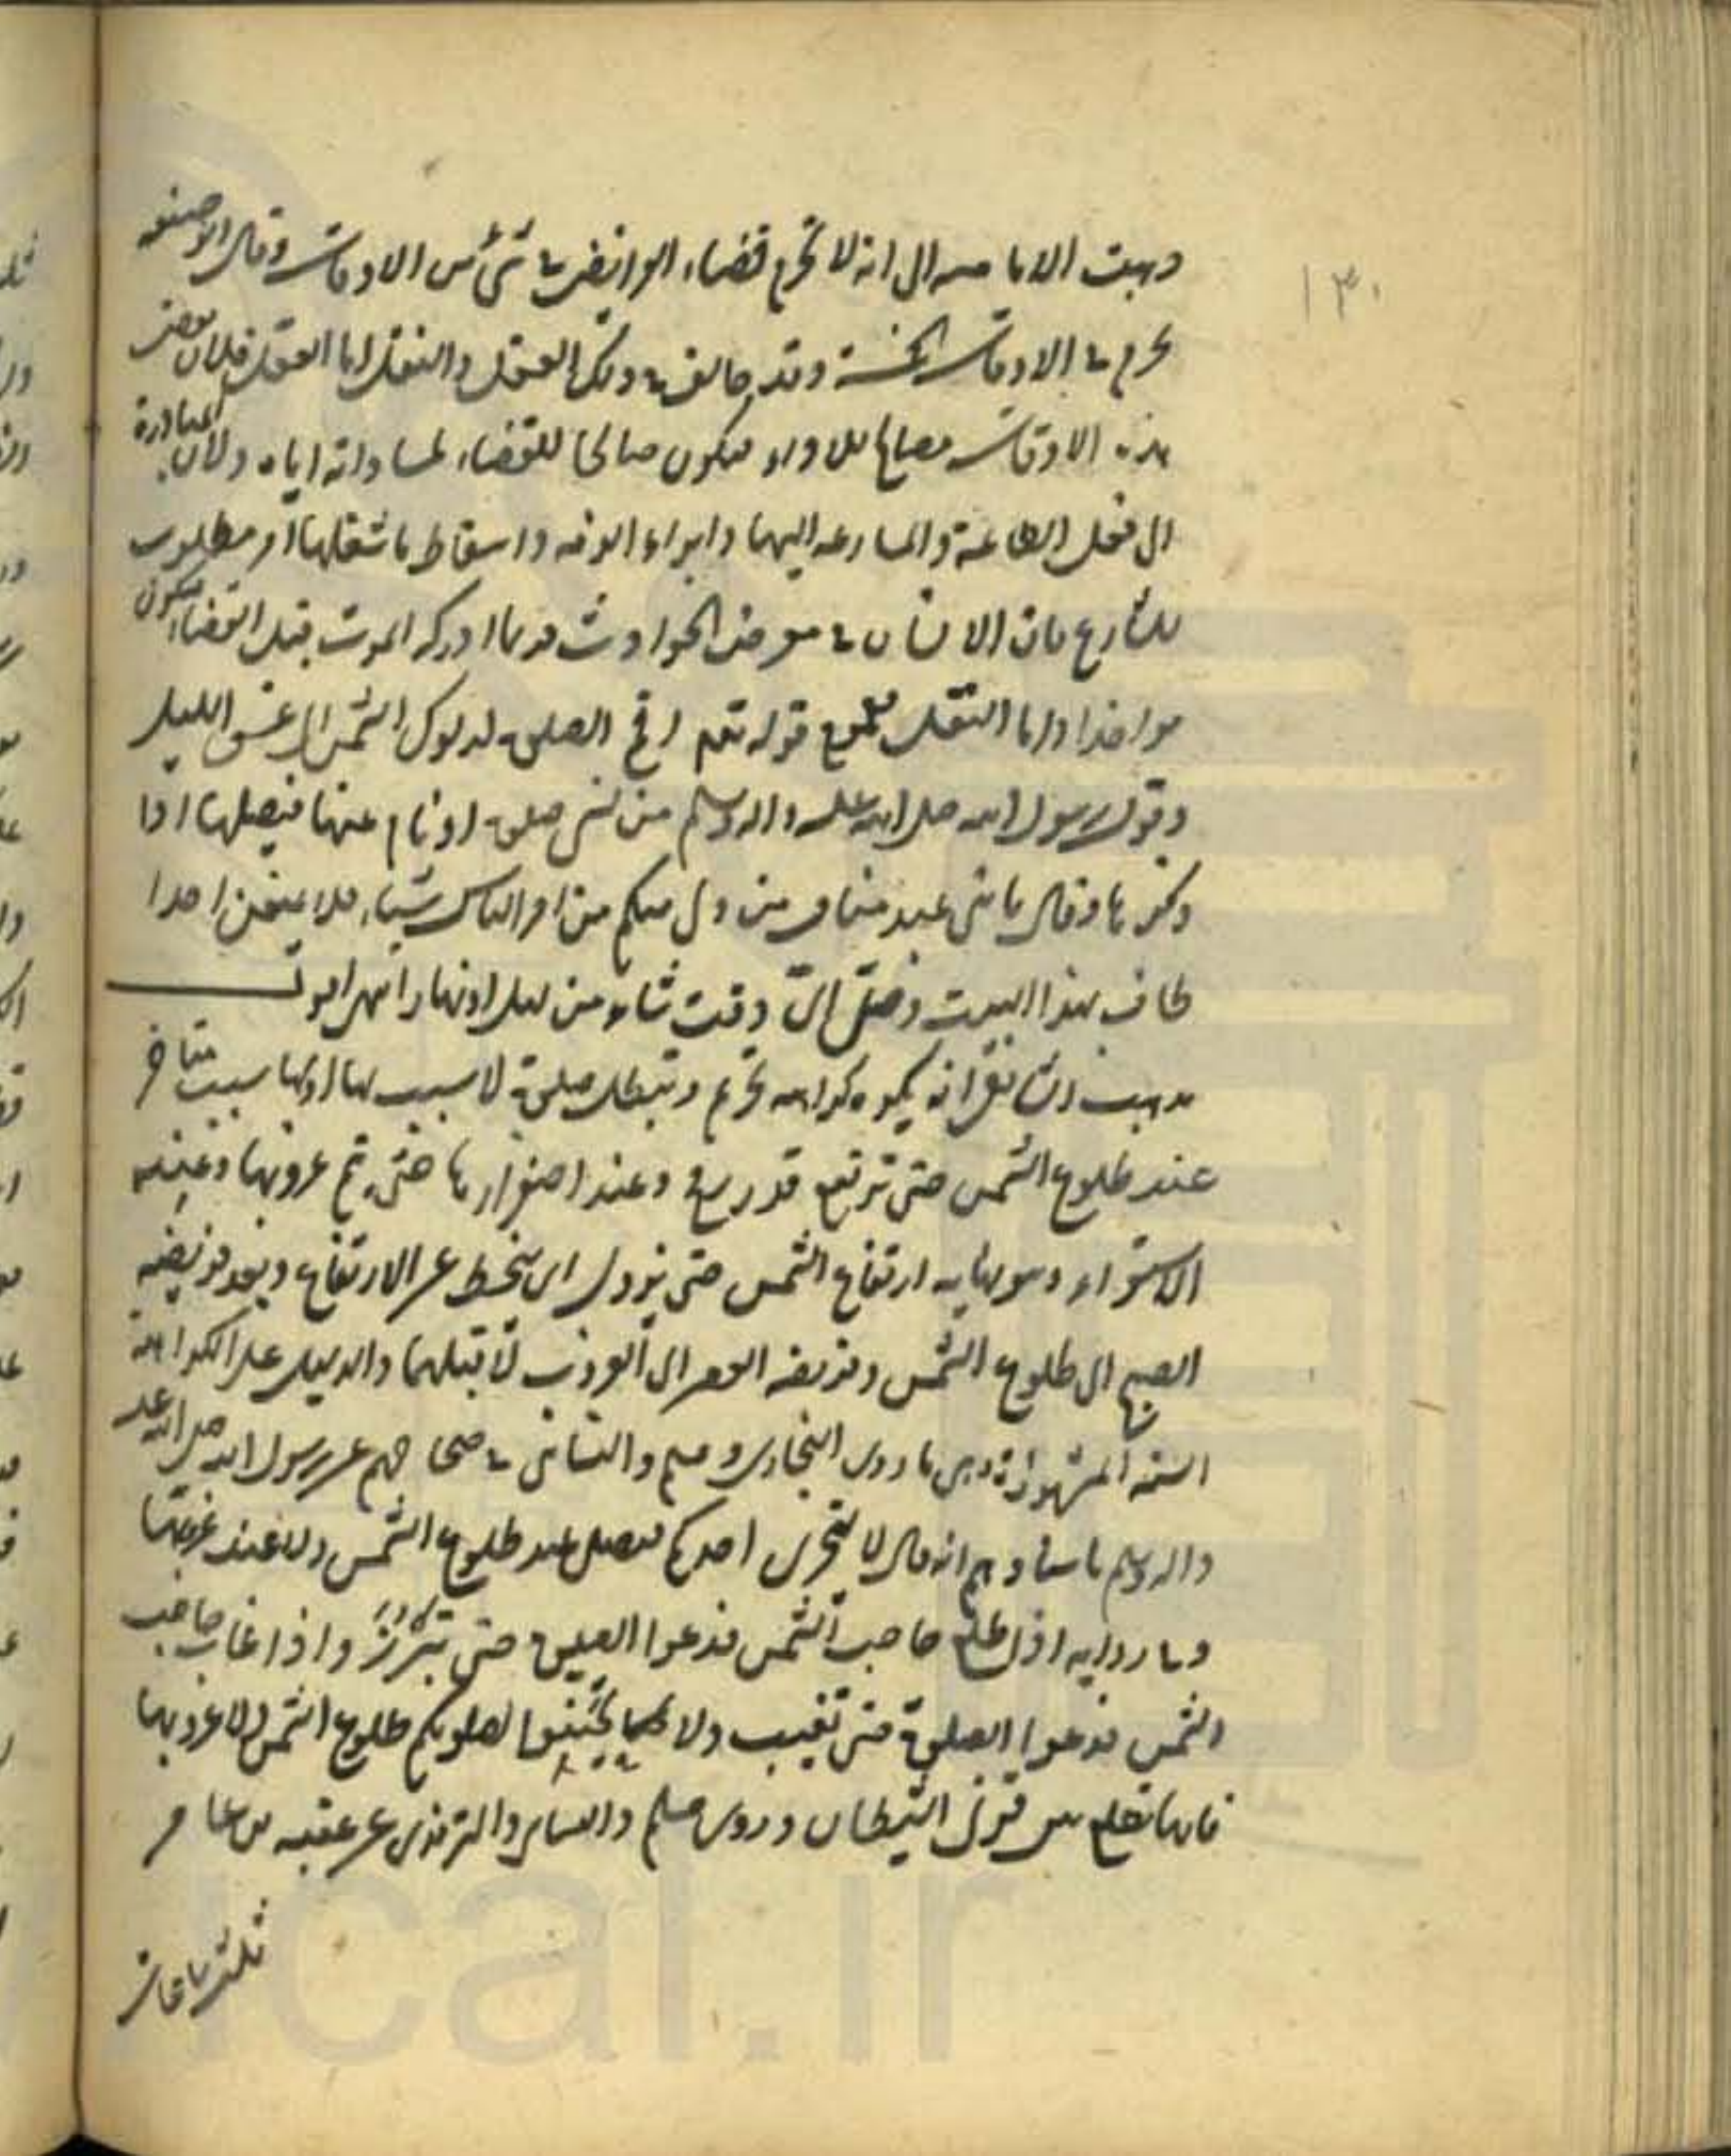 ١٣٠
ذهبت الامامیه الی انه لا تحرم قضاء الفرائض فی شیٔ من الاوقات وقال ابو حنیفه
یحرم فی الاوقات الخمسة وقد خالف فی ذلک العقل والنقل اما العقل فلان بعض
هذه الاوقات یصلح للاداء فیکون صالحا للقضاء لمساواته ایاه ولان المبادرة
الی فعل الطاعة والمسارعه الیها وابراء الذمه واسقاط ما شغلها امر مطلوب
للشارع فان الانسان فی معرض الحوادث فربما ادرکه الموت قبل القضاء فیکون
مواخذا واما النقل فلعموم قوله تعم اقم الصلوة لدلوک الشمس الی غسق اللیل
وقول رسول الله صلی الله علیه واله وسلم من نسی صلوة او نام عنها فیصلها اذا
ذکرها وقال یا بنی عبد مناف من ولی منکم من امر الناس شیئا فلا یمنعن احدا
طاف بهذا البیت وصلی ای وقت شاء من لیل او نهار انتهی اقول
مذهب الشافعی انه یکره کراهه تحریم وتبطل صلوة لا سبب لها او لها سبب متاخر
عند طلوع الشمس حتی ترتفع قدر رمح وعند اصفرارها حتی یتم غروبها وعند
الاستواء وهو نهایه ارتفاع الشمس حتی یزول ای ینحط عن الارتفاع وبعد فریضه
الصبح الی طلوع الشمس وفریضه العصر الی الغروب لا قبلهما والدلیل علی الکراهة
السنه المشهورة وهی ما روی البخاری ومسلم والنسائی فی صحاحهم عن رسول الله صلی الله علیه
واله وسلم باسنادهم انه قال لا یتحری احدکم فیصلی عند طلوع الشمس ولا عند غروبها
وفی روایه اذا طلع حاجب الشمس فدعوا الصلوة حتی تبرز واذا غاب حاجب
الشمس فدعوا الصلوة حتی تغیب ولا تحینوا لصلوتکم طلوع الشمس ولا غروبها
فانها تطلع بین قرنی الشیطان وروی مسلم والنسائی والترمذی عن عقبه بن عامر
ثلث ساعات